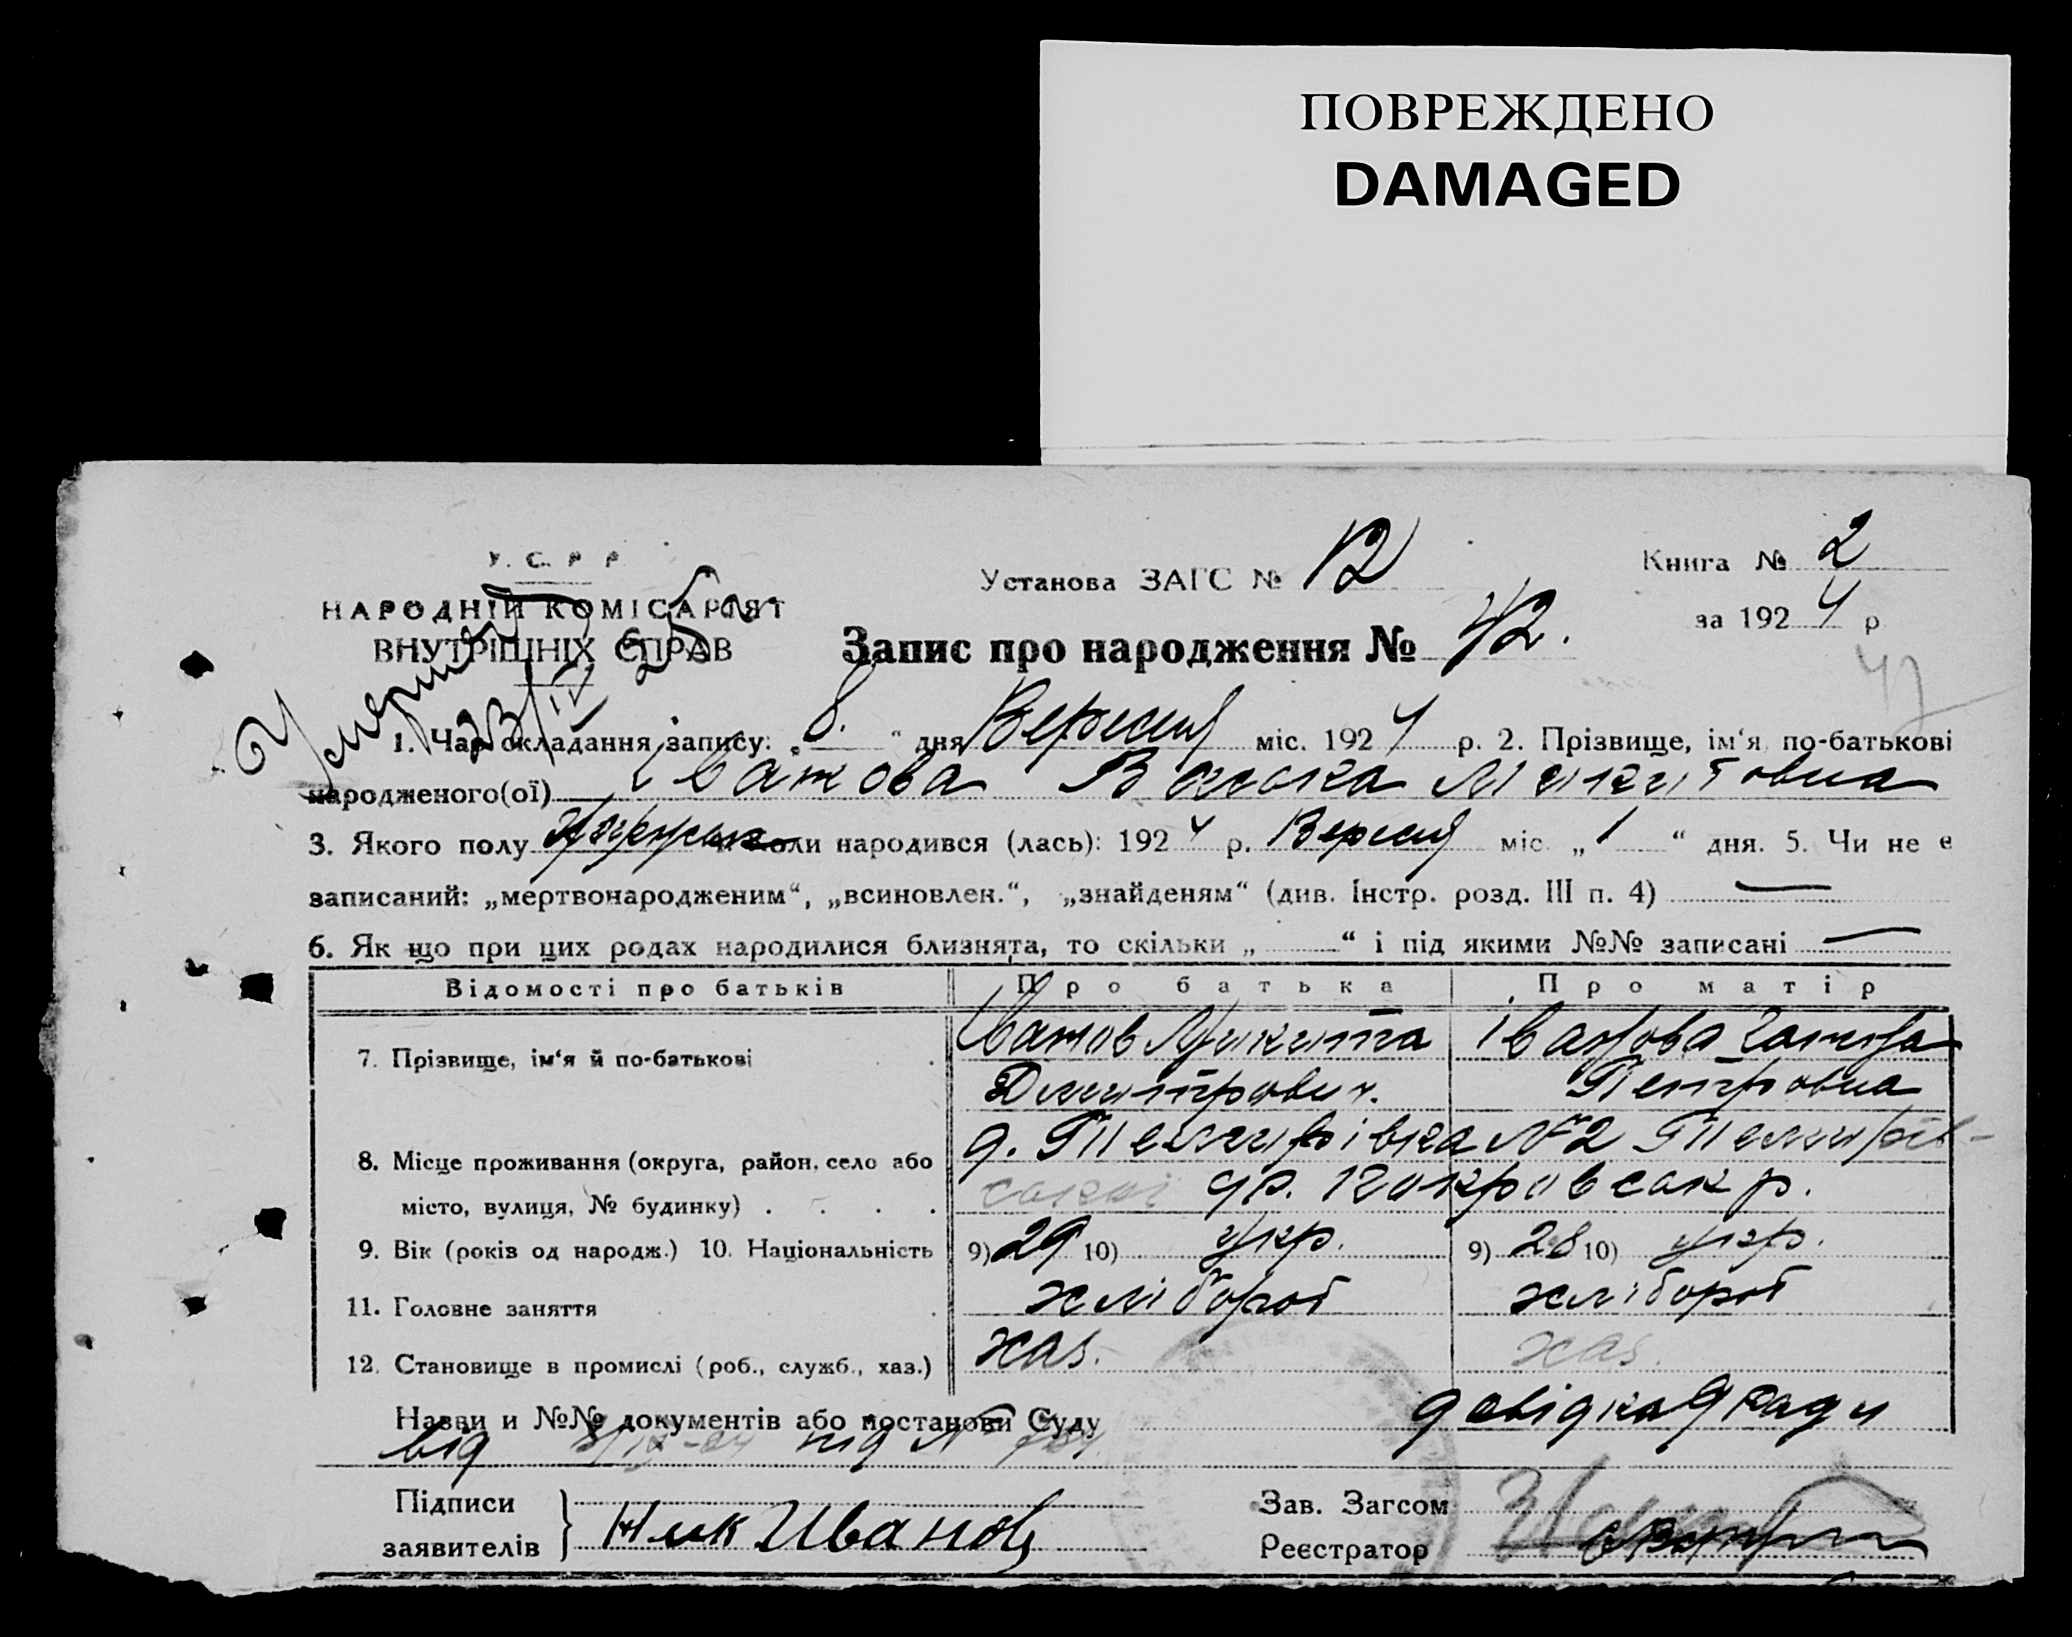 ПОВРЕЖДЕНО
DAMAGED
У. С. Р. Р.
НАРОДНІЙ КОМІСАРІЯТ
ВНУТРІШНІХ СПРАВ
Установа ЗАГС № 12
Книга № 2
за 1924 р
Запис про народження № 42.
47
23/IV 25
1. Час складання запису: „8.“ дня Вересня міс. 1924 р. 2. Прізвище, ім'я, по-батькові
народженого(ої) Іванова Васька Микитовна
3. Якого полу коли народився (лась): 1924 р. Вересня міс. „1“ дня. 5. Чи не є
записаний: „мертвонародженим“, „всиновлен.“, „знайденям“ (див. Інстр. розд. III п. 4) —
6. Як що при цих родах народилися близнята, то скільки „ “ і під якими №№ записані —
Відомості про батьків Про батька Про матір
7. Прізвище, ім'я й по-батькові Іванов Микита Іванова
Дмитрович. Петровна
8. Місце проживання (округа, район, село або д. № 2
місто, вулиця, № будинку) . . . . Покровсак р.
9. Вік (років од народж.) 10. Національність 9) 29 10) укр. 9) 28 10) укр.
11. Головне заняття хлібороб хлібороб
12. Становище в промислі (роб., служб., хаз.) хаз. хаз.
Назви и №№ документів або постанови Суду довідка Ради
від під №
Підписи
заявителів } Ник Иванов
Зав. Загсом
Реєстратор